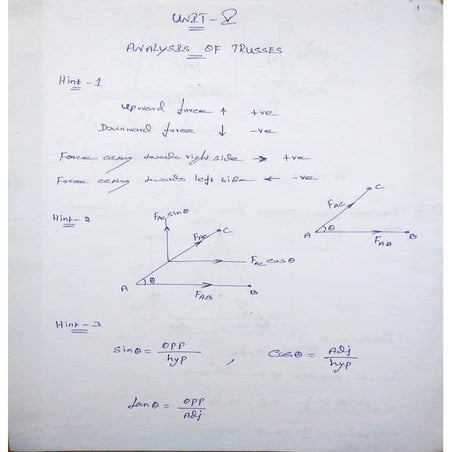 UNIT - V
ANALYSIS OF TRUSSES
Hint - 1
Upward force ↑ +ve
Downward force ↓ -ve
Force acting towards right side → +ve
Force acting towards left side ← -ve
Hint - 2
F_AC sinθ
F_AC C
F_AC cosθ
A θ F_AB B
C
F_AC
A θ F_AB B
Hint - 3
sinθ = opp/hyp , cosθ = Adj/hyp
tanθ = opp/Adj